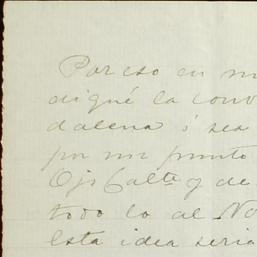 Por eso en mi
diqué la conv
dalena ó sea
por un punto
Ojo Calte y de
todo lo al No
Esta idea seria